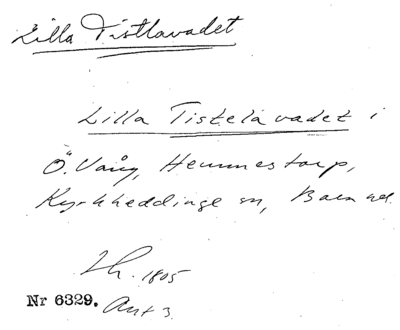 Lilla Tistlavadet
Lilla Tistelavadet i
Ö. Vång, Hemmestorp,
Kyrkheddinge sn, Bara hd.
1805
Nr 6329. Akt 3.